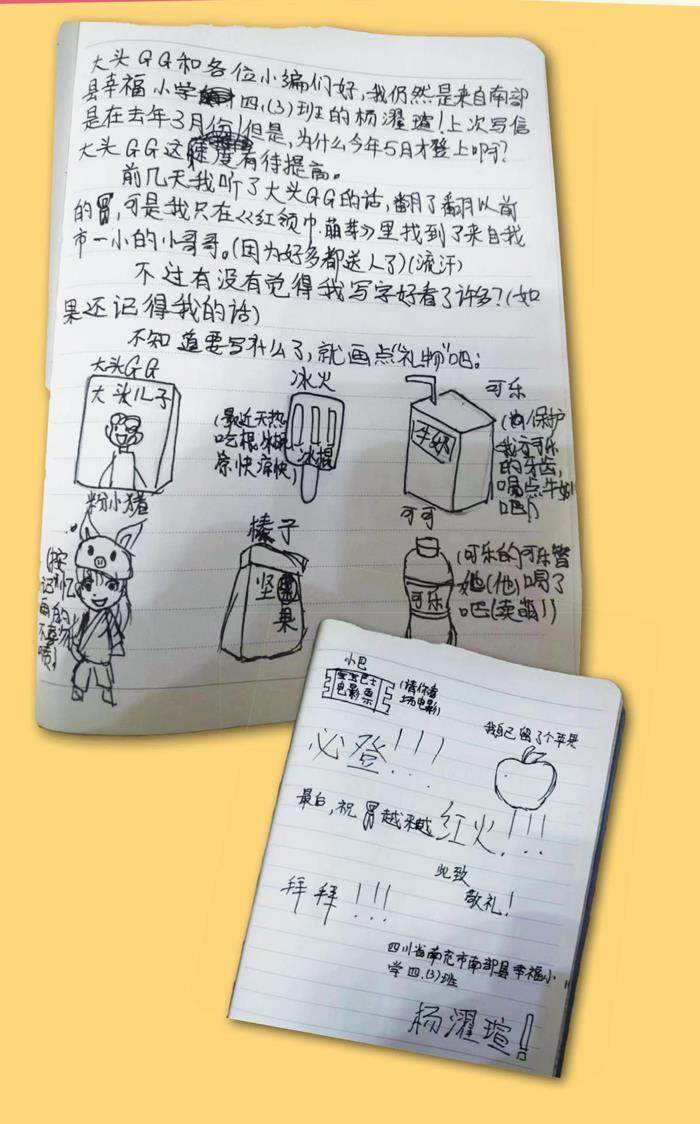 大头GG和各位小编们好,我仍然是来自南部
县幸福小学四.(3)班的杨濯瑄!上次写信
是在去年3月份!但是,为什么今年5月才登上啊?
大头GG这速度有待提高。
前几天我听了大头GG的话,翻了翻以前
的冒,可是我只在《红领巾·萌芽》里找到了来自我
市一小的小哥哥。(因为好多都送人了)(流汗)
不过有没有觉得我写字好看了许多?(如
果还记得我的话)
不知道要写什么了,就画点“礼物”吧:
大头GG
大头儿子
冰火
(最近天热
吃根冰棍
凉快凉快)
冰棍
可乐
牛奶
保护
我方可乐
的牙齿,
喝点牛奶
吧!)
粉小猪
(按
记忆
画的
不要
喷)
榛子
坚果
可可
可乐
(可乐的可乐暂
她(他)喝了
吧(卖萌)!)
小巴
宝宝巴士
电影票
(请你看
场电影)
必登!!!
我自己留了个苹果
最后,祝冒越来越红火!!!
此致
敬礼!
拜拜!!!
四川省南充市南部县幸福小
学四.(3)班
杨濯瑄!